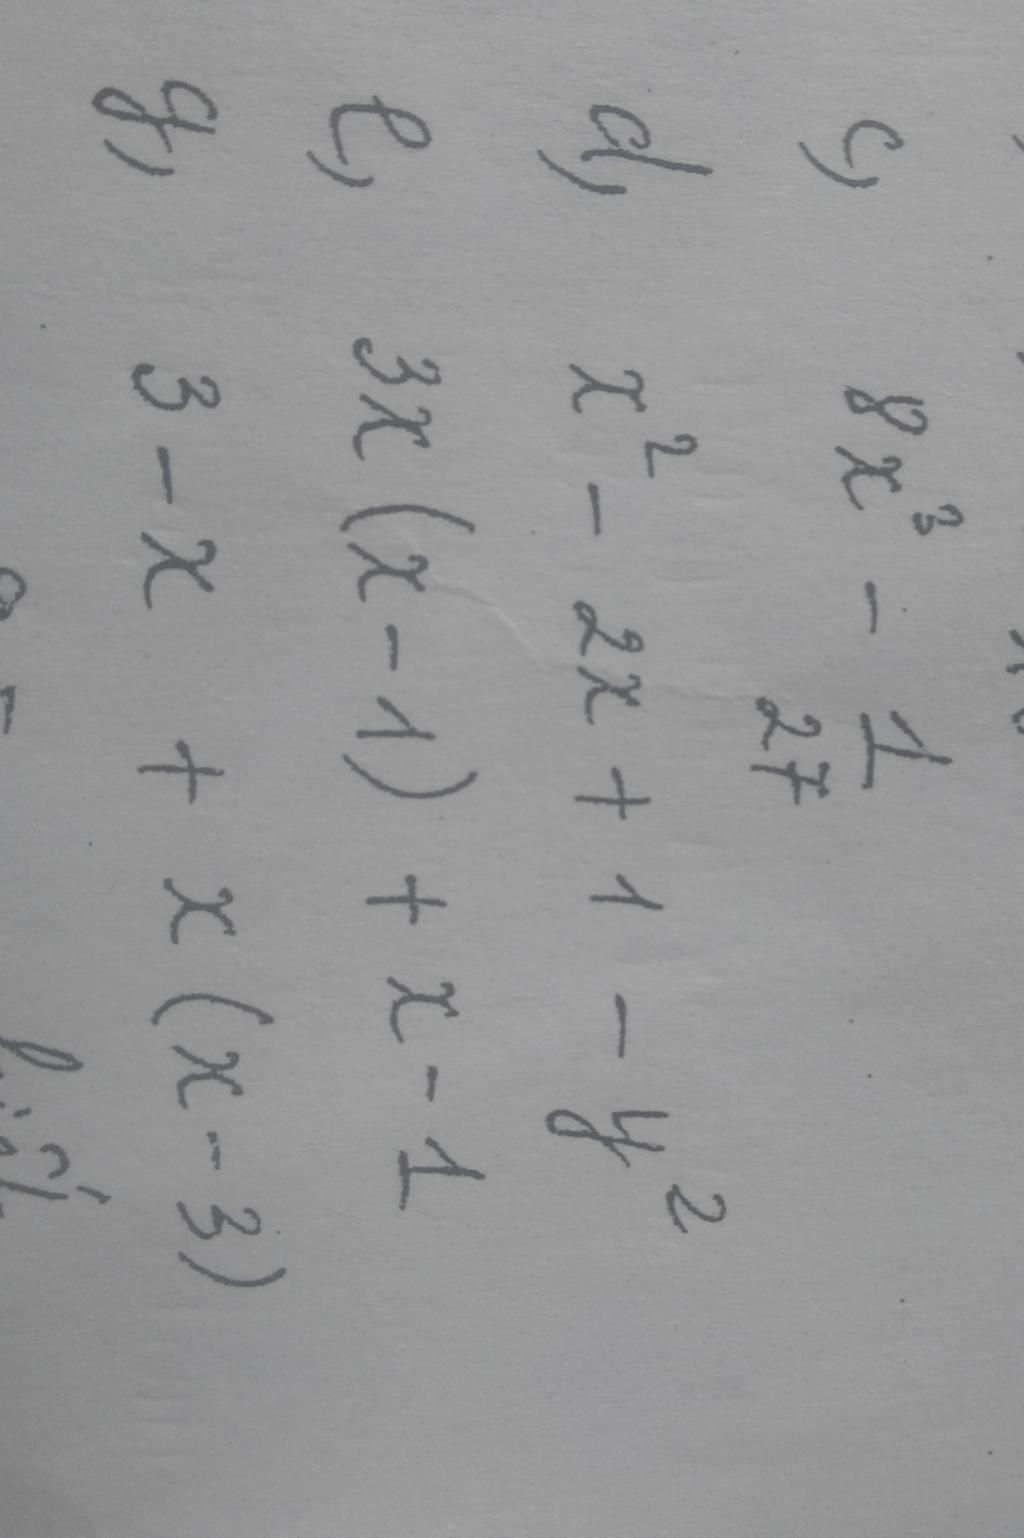 c) 8x³ - 1/27
d) x² - 2x + 1 - y²
e) 3x(x - 1) + x - 1
g) 3 - x + x(x - 3)